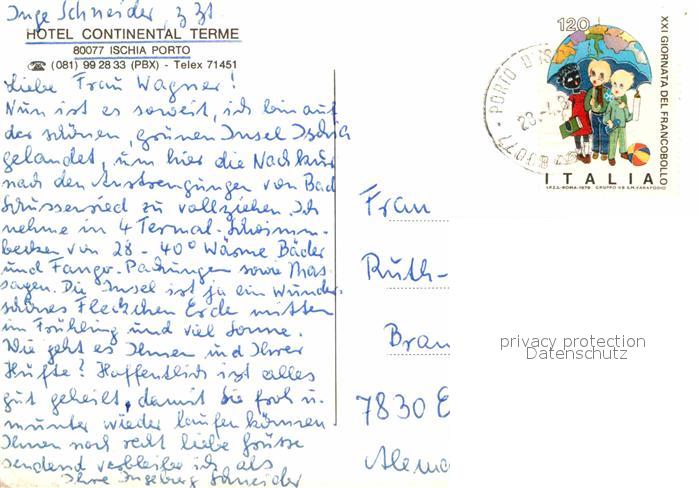 Inge Schneider, z Zt
HOTEL CONTINENTAL TERME
80077 ISCHIA PORTO
☎ (081) 99 28 33 (PBX) - Telex 71451
Liebe Frau Wagner!
Nun ist es soweit, ich bin auf
der schönen, grünen Insel Ischia
gelandet, um hier die Nachkur
nach den Anstrengungen von Bad
Schussenried zu vollziehen. Ich
nehme in 4 Termal-Schwimm-
becken von 28 - 40° Wärme Bäder
und Fango-Packungen sowie Mas-
sagen. Die Insel ist ja ein wunder-
schönes Fleckchen Erde mitten
im Frühling und viel Sonne.
Wie geht es Ihnen und Ihrer
Hüfte? Hoffentlich ist alles
gut geheilt, damit Sie froh u.
munter wieder laufen können
Ihnen noch recht liebe Grüsse
sendend verbleibe ich als
Ihre Ingeburg Schneider
120
XXI GIORNATA DEL FRANCOBOLLO
ITALIA
I.P.Z.S.-ROMA-1979 GRUPPO VB S.M. FARAPODIO
80077 - PORTO D'IS
Frau
Ruth-
Bran
7830 E
Alema
privacy protection
Datenschutz